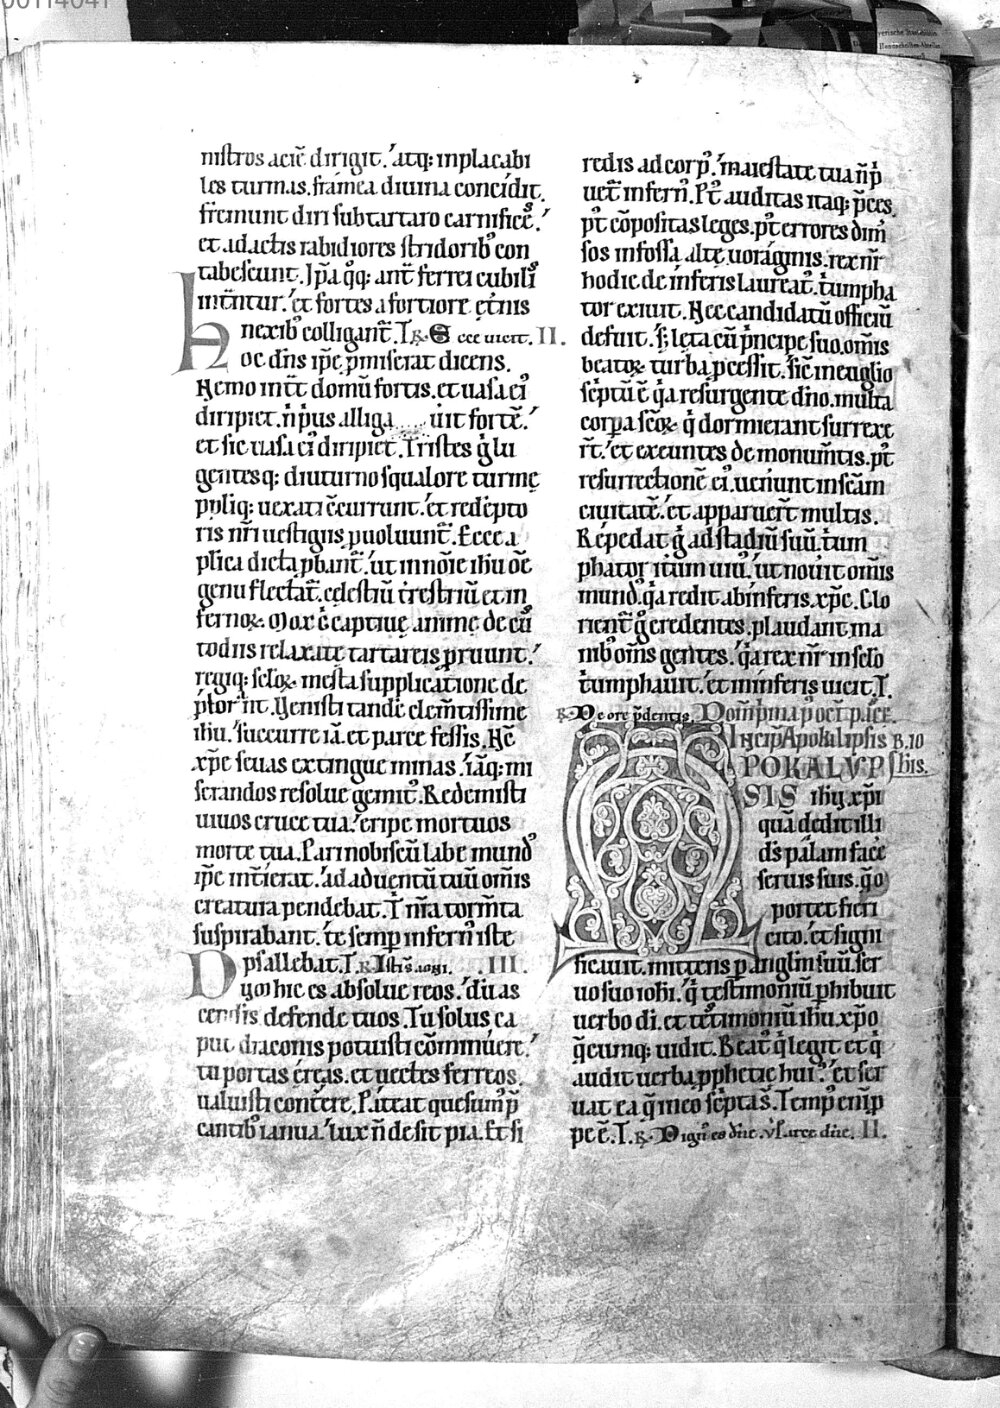 00114041
nistros acie᷒ dirigit. atq; inplacabi
les turmas. framea diuina concidit.
fremunt diri sub tartaro carnifice᷒.
et adactis rabidiores stridorib᷒ con
tabescunt. Ip̄a q̄q; ant̄ ferrei cubili
et fortes a fortiore et̄nis
nexib᷒ colligant̄. T. R. Ecce uicit. II.
hoc dn̄s ip̄e p̱miserat dicens.
Nemo int̄t domū fortis. et uasa ei᷒
diripiet. n̄ p᷒us alliga uit fortē.
et sic uasa ei᷒ diripiet. Tristes g̊ lu
gentesq; diuturno squalore turme
p̱uoluunt̄. Ecce a
plica dicta p̱bant̄. ut in nōie ih̄u ōē
genu flectat̄. celestiū t̄restriū et in
fernoꝝ. Mox ē captiuę animę de cū
todiis relaxatę tartareis p̱ruunt.
regiq; scl̄oꝝ mesta supplicatione de
Uenisti tandē clem̄tissime
ih̄u. succurre iā. et parce fessis. Nc̄
xp̄e seuas extingue minas. iāq; mi
serandos resolue gemit᷒. Redemisti
uiuos cruce tua. eripe mortuos
morte tua. Par inobiscū labe mund᷒
ip̄e int̄ierat. ad aduentū tuū om̄is
creatura pendebat. I nr̄a torm̄ta
suspirabant. te semp̱ infern᷒ iste
psallebat. T. R. III.
Qui hic es absolue reos. dū as
cendis defende tuos. Tu solus ca
put draconis potuisti cōmiuere.
tu portas ereas. et uectes ferreos.
ualuisti cont̄ere. Pateat quesum᷒ p̄
cantib᷒ ianua. lux n̄ desit pia. Et si
redis ad corp᷒. maiestate tua n̄ p̱
uet̄ infern᷒. P᷒t auditas itaq; p̄ces.
p᷒t cōpositas leges. p᷒t errores diu᷒
sos in fossa altę uoraginis. rex nr̄
hodie de inferis laureat᷒. triumpha
tor exiuit. Nec candidatū officiū
defuit. s; leta cū p̄ncipe suo. om̄is
beatoꝝ turba p̱cessit. sic̄ in euglio
sc̄ptū ē q̄a resurgente dn̄o. multa
corp̱a sc̄oꝝ q̄ dormierant surrexe
r̄t. et exeuntes de monum̄tis. p᷒t
resurrectionē ei᷒. ueniunt in sc̄am
ciuitatē. et apparuer̄t multis.
Repedat g̊ ad stadiū suū. trium
phator it̄um uiu᷒. ut nouit om̄is
mund᷒. q̄a redit ab inferis. xp̄c. Glo
rient̄ g̊ credentes. plaudant ma
nib᷒ om̄s gentes. q̄a rex nr̄ in celo
triumphauit. et in inferis uicit. T.
R. De ore p̄dentis. Dom̄ p̄ma p᷒ oct̄ pasce.
Incip̱ Apokalipsis B. Io
APOKALYP his.
SIS ih̄u xp̄i
quā dedit illi
ds̄ palam facē
seruis suis. q̄ o
portet fieri
cito. et signi
ficauit. mittens p̱ anglm̄ suū. ser
uo suo ioh̄i. q̄ testimoniū p̱hibuit
uerbo di. et testimoniū ih̄u xp̄o
q̄cumq; uidit. Beat᷒ q̄ legit et q̄
audit uerba p̱phetie hui᷒. et ser
uat ea q̄ in eo sc̄pta s̄. Temp᷒ eni̅ p̱
pe ē. T. R. Dign᷒ es dn̄e. VI. arce dn̄e. II.